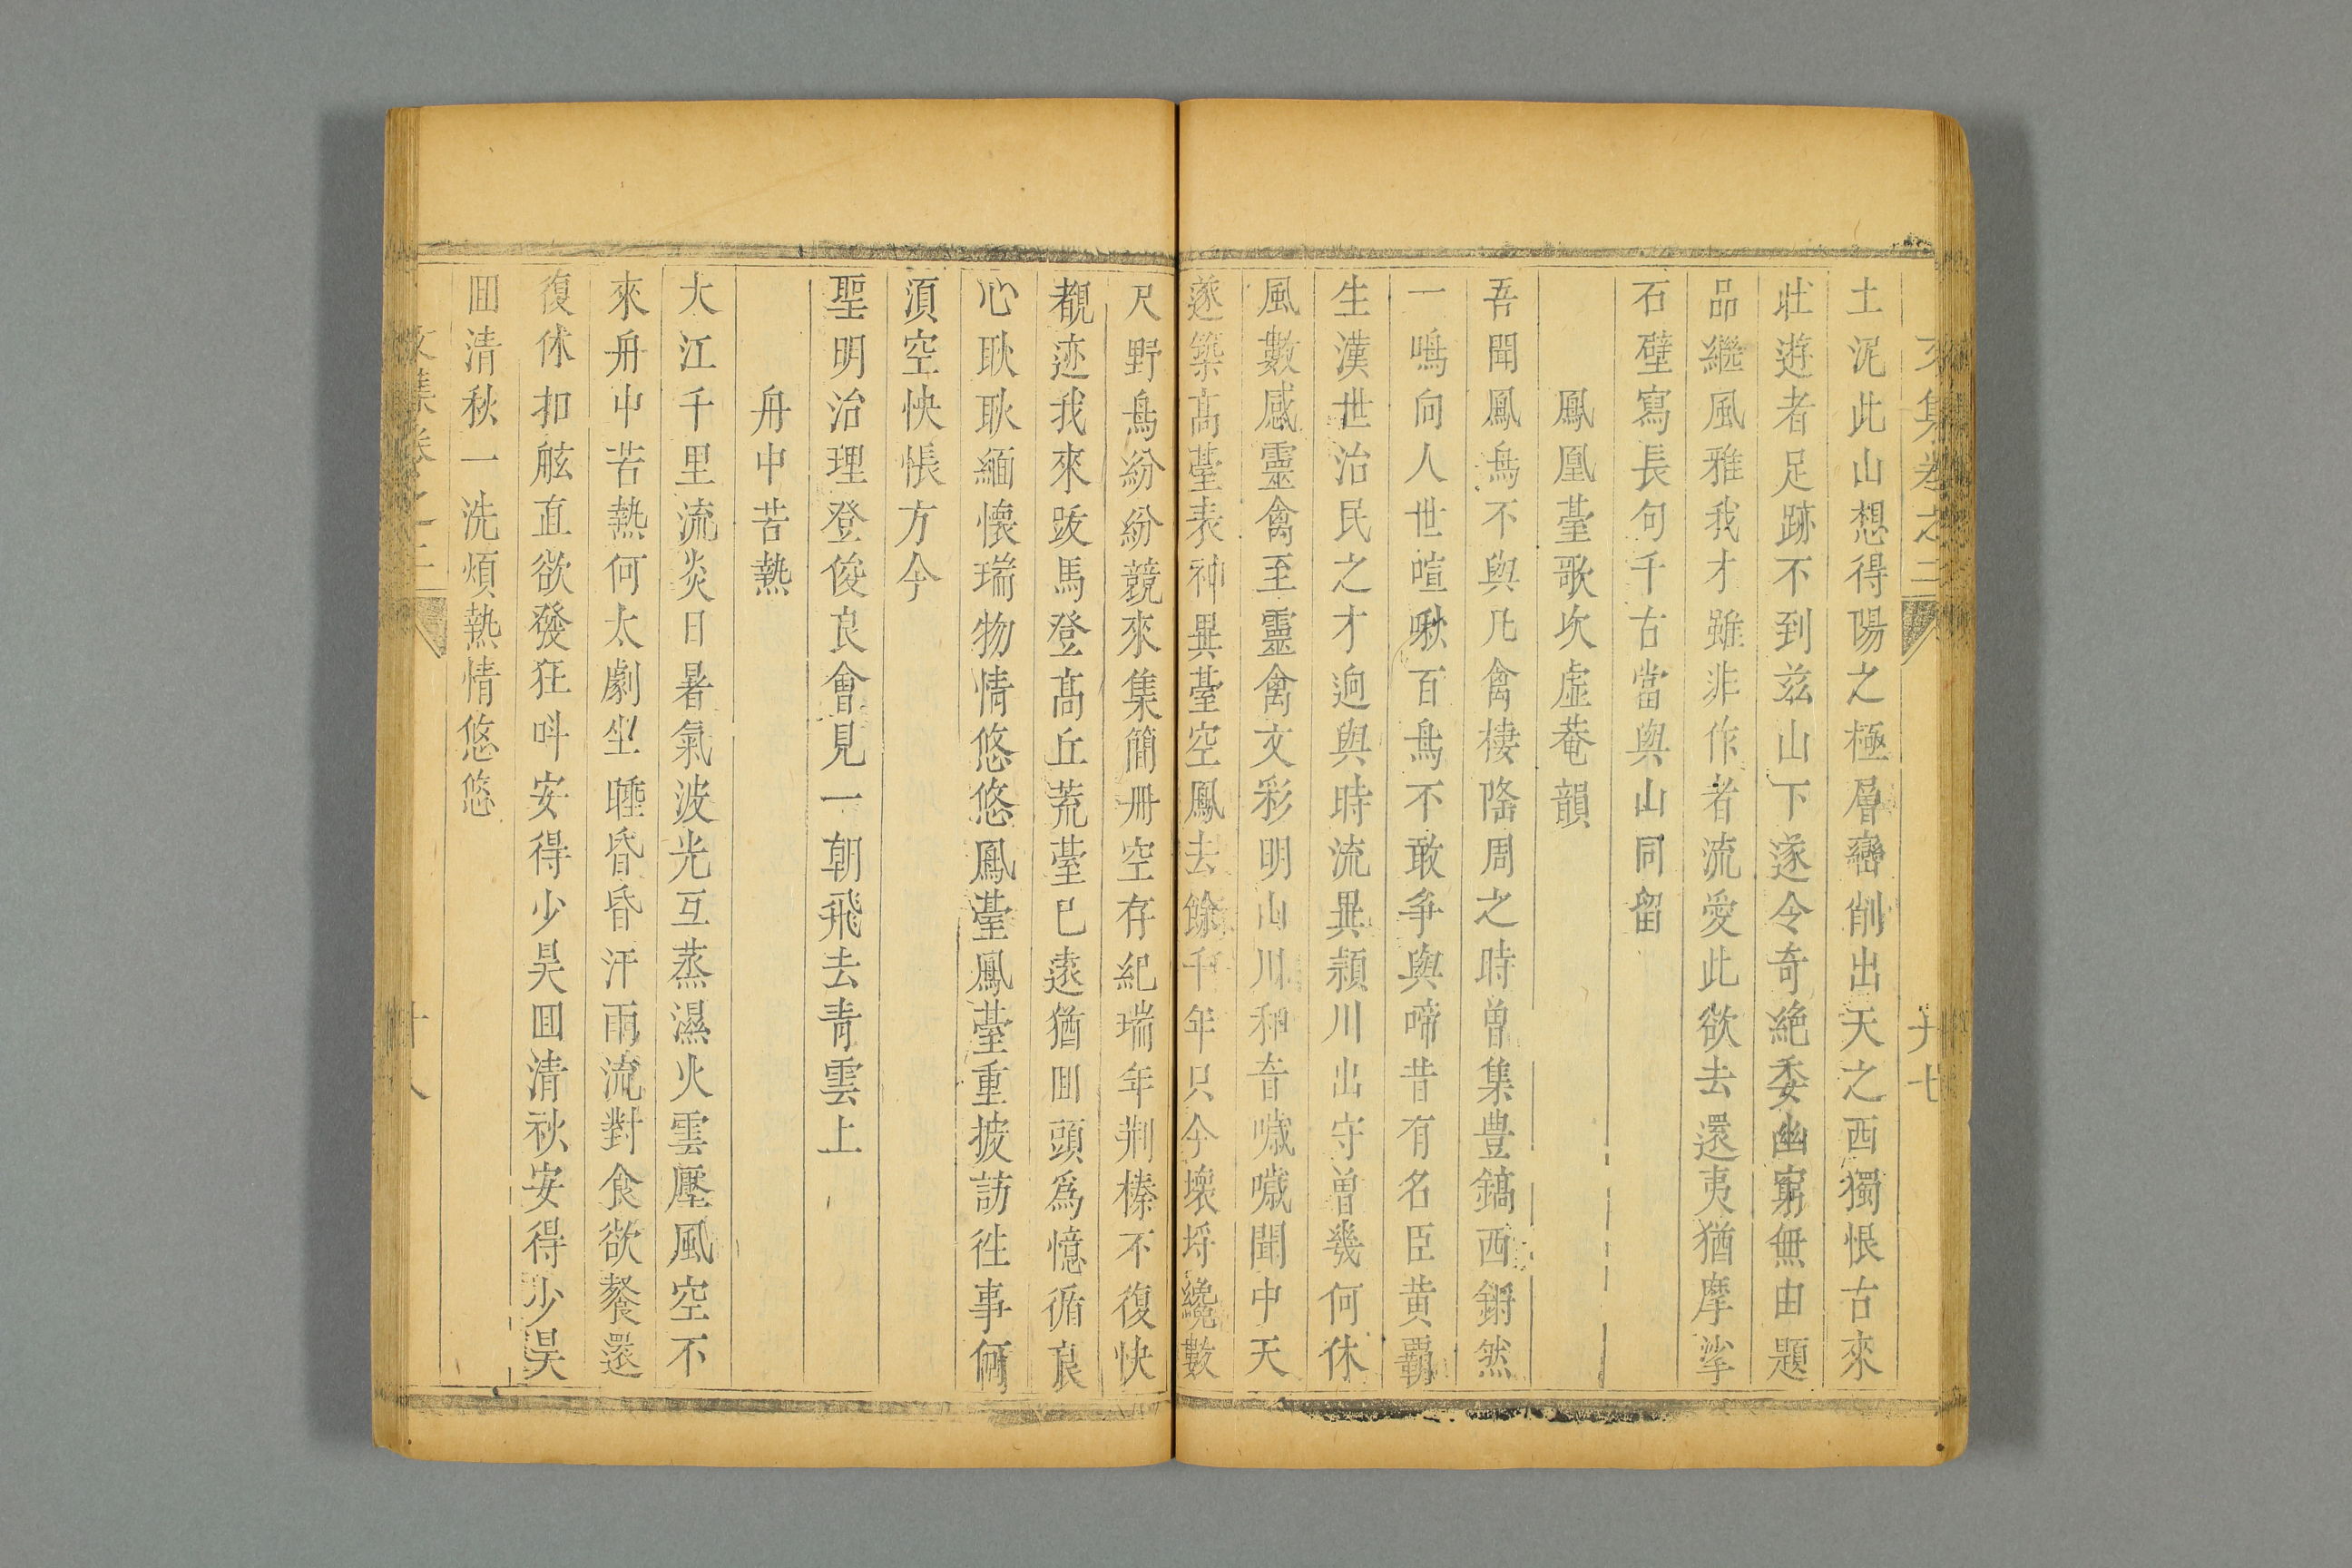 文集卷之二 十七
土泥此山想得陽之極層巒削出天之西獨恨古來
壯遊者足跡不到茲山下遂令奇絶委幽窮無由題
品繼風雅我才雖非作者流愛此欲去還夷猶摩挲
石壁寫長句千古當與山同留
鳳凰臺歌次虛菴韻
吾聞鳳鳥不與凡禽棲降周之時曽集豊鎬西鏘然
一鳴向人世喧啾百鳥不敢爭與啼昔有名臣黄霸
生漢世治民之才逈與時流異潁川出守曽幾何休
風數感靈禽至靈禽文彩明山川和音噦噦聞中天
遂築髙臺表神異臺空鳳去餘千年只今壊垺纔數
尺野鳥紛紛競來集簡冊空存紀瑞年荆榛不復快
覩迹我來跋馬登髙丘荒臺巳遠猶囬頭爲憶循良
心耿耿緬懷瑞物情悠悠鳳臺鳳臺重披訪徃事何
湏空怏悵方今
聖明治理登俊良會見一朝飛去青雲上
舟中苦熱
大江千里流炎日暑氣波光互蒸濕火雲壓風空不
來舟中苦熱何太劇坐睡昏昏汗雨流對食欲餐還
復休扣舷直欲發狂呌安得少昊囬清秋安得少昊
囬清秋一洗煩熱情悠悠
文集卷之二 十八